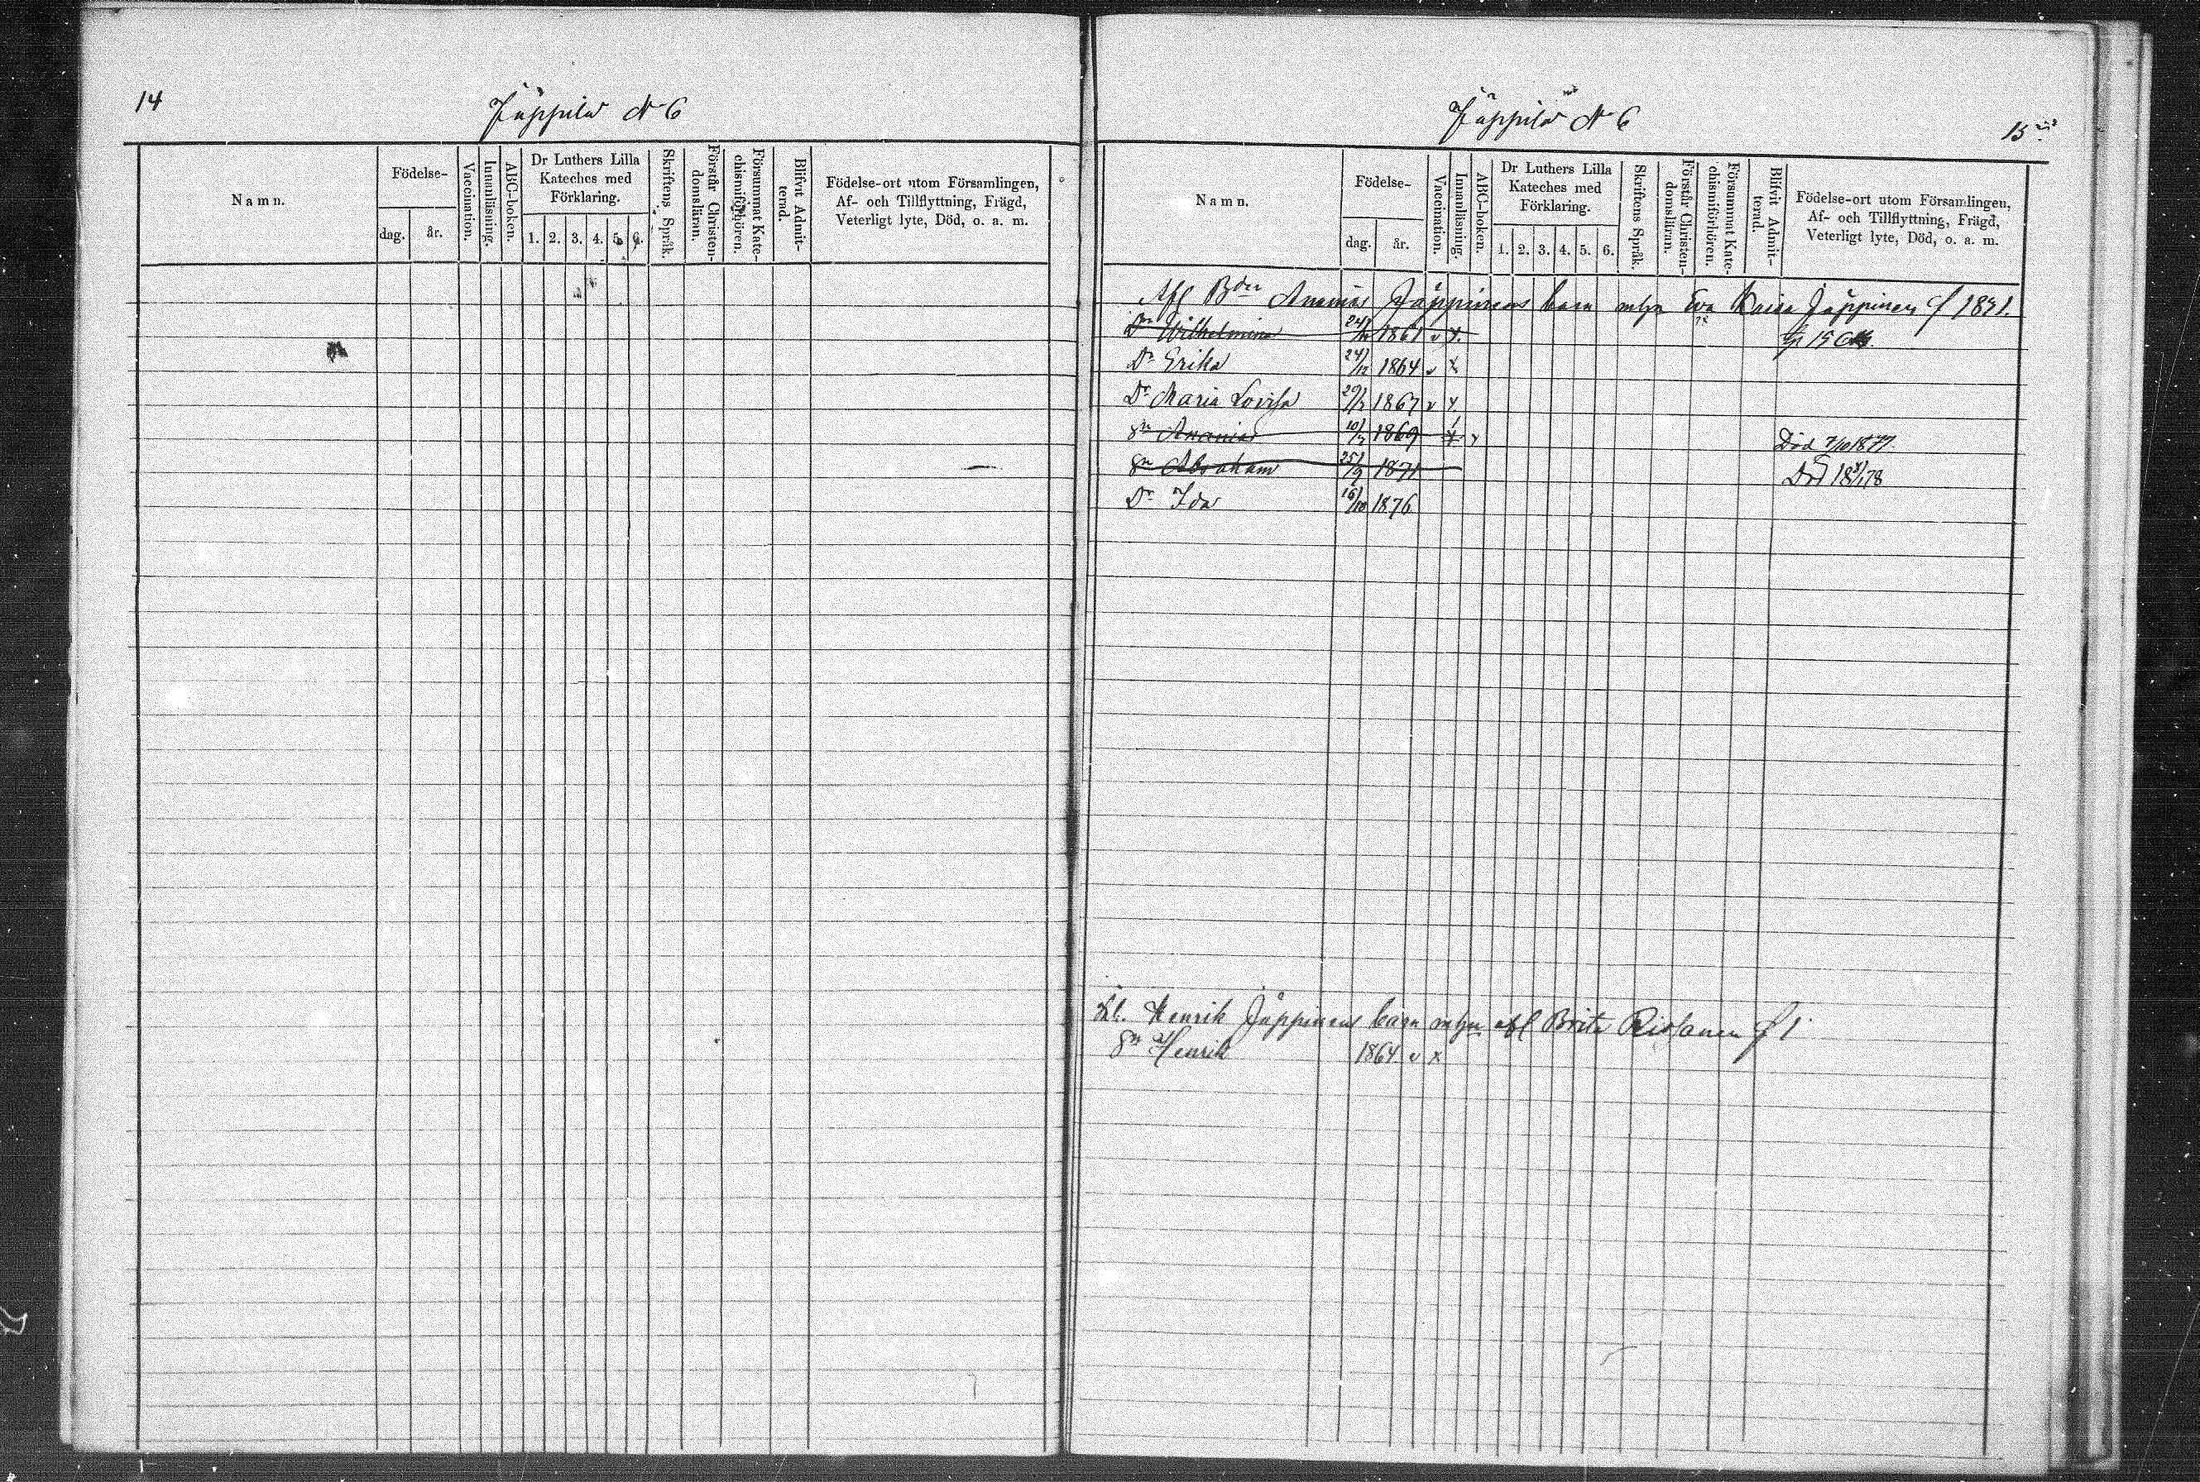 14
Jäppilä N 6
Namn.
Födelse-
dag.
år.
Vaccination.
Innanläsning.
ABC-boken.
Dr Luthers Lilla
Kateches med
Förklaring.
1. 2. 3. 4. 5. 6.
Skriftens Språk.
Förstår Christen-
domsläran.
Försummat Kate-
chismiförhören.
Blifvit Admit-
terad.
Födelse-ort utom Församlingen,
Af- och Tillflyttning, Frägd,
Veterligt lyte, Död, o. a. m.
Jäppilä N 6
15
Namn.
Födelse-
dag.
år.
Vaccination.
Innanläsning.
ABC-boken.
Dr Luthers Lilla
Kateches med
Förklaring.
1. 2. 3. 4. 5. 6.
Skriftens Språk.
Förstår Christen-
domsläran.
Försummat Kate-
chismiförhören.
Blifvit Admit-
terad.
Födelse-ort utom Församlingen,
Af- och Tillflyttning, Frägd,
Veterligt lyte, Död, o. a. m.
Afl Bden Ananias Jäppinens barn mhu Eva Kaisa Jäppinen 1871.
Dr Wilhelmina 1861 v x
Dr Erika 24/12 1864 v x
Dr Maria Lovisa 1867 v x
Sn Ananias 1869 x Död 7/10 1877.
Sn Abraham 1871 Död
Dr Ida 16/10 1876
Henrik Jäppinens barn afl Brita
Sn Henrik 1864 v x